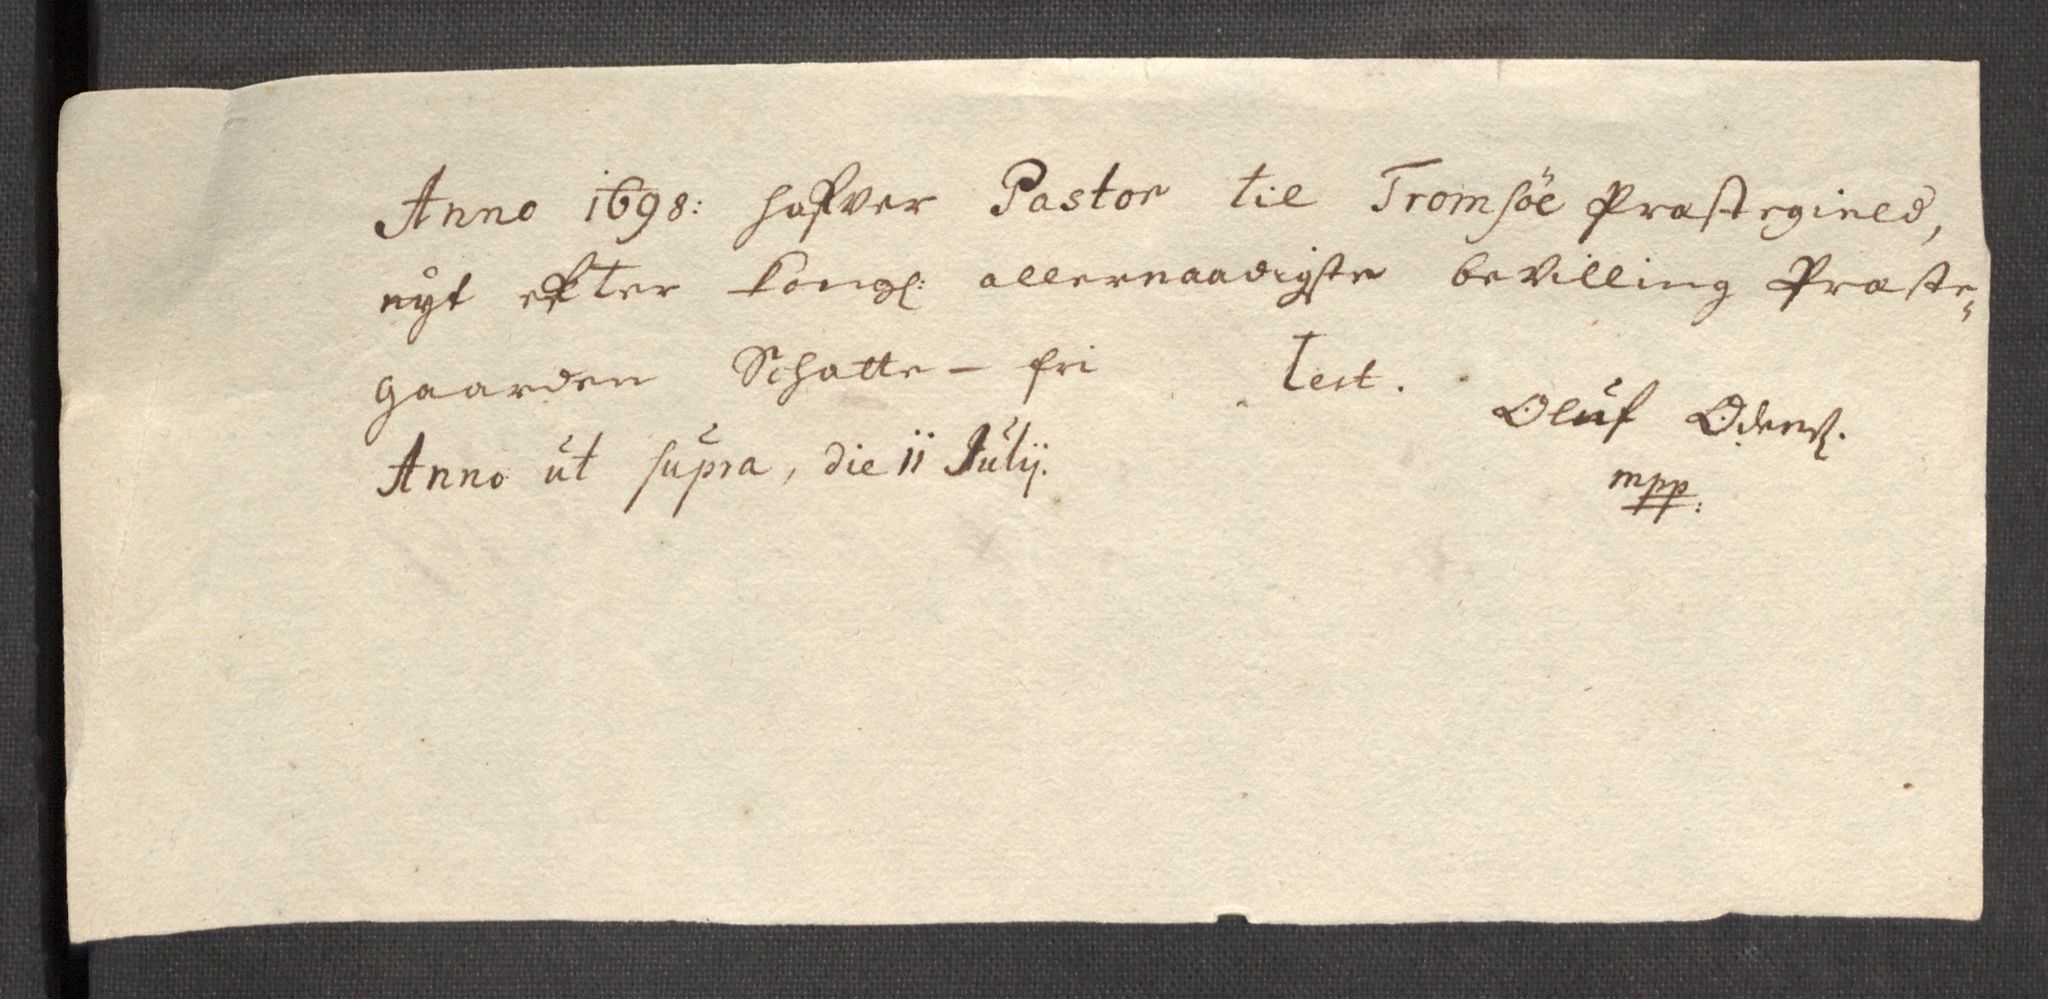 Anno 1698: hafver Pastor til Tromsöe Præstegield,
nyt efter kongl: allernaadigste beVilling Præste-
gaarden Schatte-fri Test.
Oluf Odens.
Anno ut supra, die 11 Julij.
mpp: